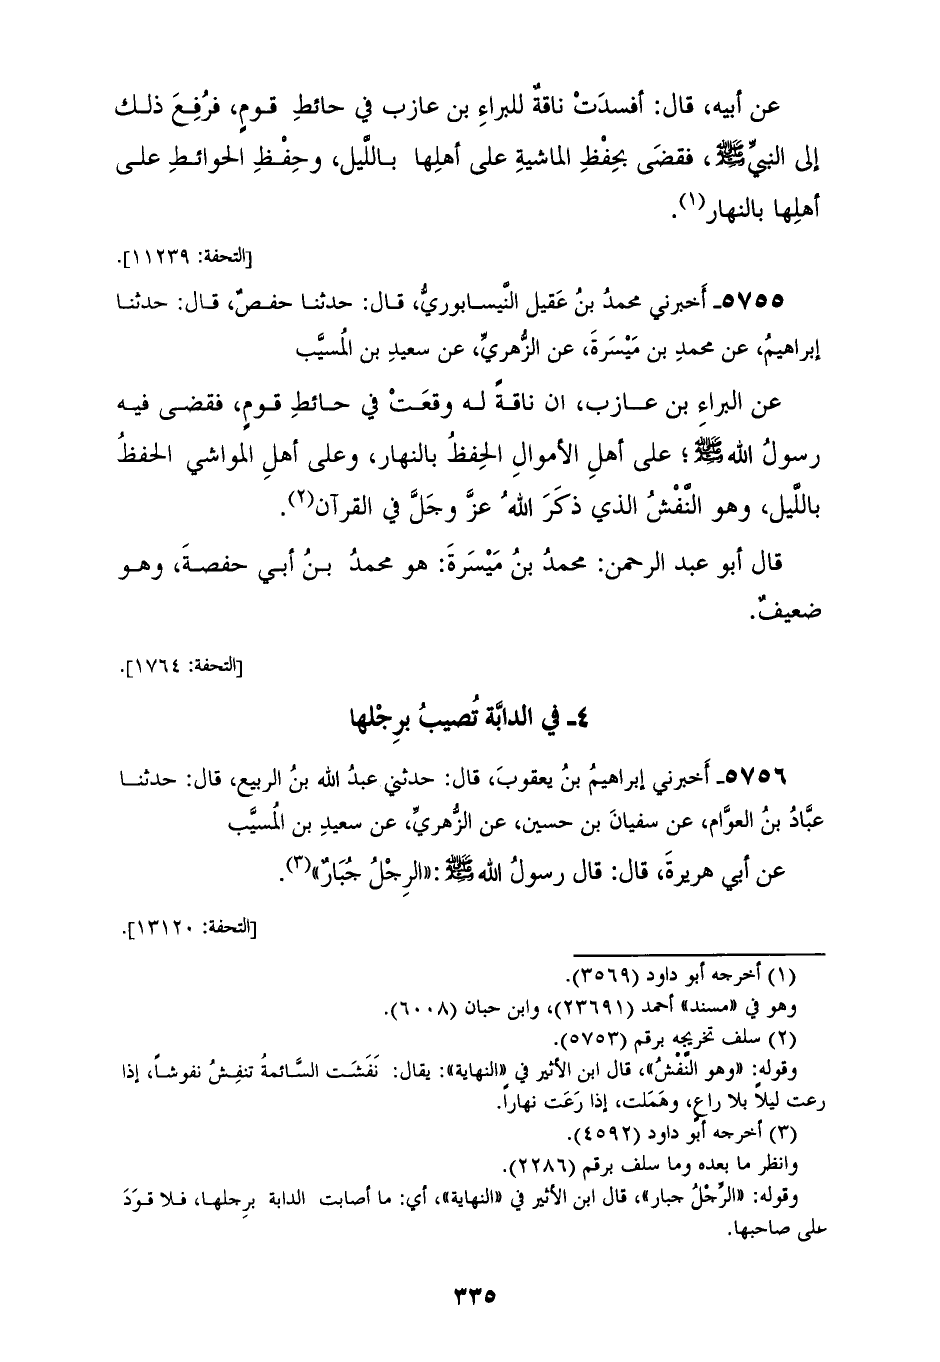 عن أبيه، قال: أفسدَتْ ناقةٌ للبراءِ بن عازب في حائطِ قومٍ، فرُفِعَ ذلك
إلى النبيِّ ﷺ، فقضَى بحِفْظِ الماشيةِ على أهلِها باللَّيل، وحِفْظِ الحوائطِ على
أهلِها بالنهار(١).
[التحفة: ١١٢٣٩].
٥٧٥٥ـ أَخبرني محمدُ بنُ عَقيل النَّيسابوريُّ، قال: حدثنا حفصٌ، قال: حدثنا
إبراهيمُ، عن محمدِ بن مَيْسَرةَ، عن الزُّهريِّ، عن سعيدِ بن المُسيَّب
عن البراءِ بن عازب، ان ناقةً له وقعَتْ في حائطِ قومٍ، فقضى فيه
رسولُ الله ﷺ؛ على أهلِ الأموالِ الحِفظُ بالنهار، وعلى أهلِ المواشي الحفظُ
باللَّيل، وهو النَّفْشُ الذي ذكَرَ اللهُ عزَّ وجَلَّ في القرآن(٢).
قال أبو عبد الرحمن: محمدُ بنُ مَيْسَرةَ: هو محمدُ بنُ أبي حفصةَ، وهو
ضعيفٌ.
[التحفة: ١٧٦٤].
٤ـ في الدابَّة تُصيبُ برِجْلها
٥٧٥٦ـ أَخبرني إبراهيمُ بنُ يعقوبَ، قال: حدثني عبدُ الله بنُ الربيع، قال: حدثنا
عبَّادُ بنُ العوَّام، عن سفيانَ بن حسين، عن الزُّهريِّ، عن سعيدِ بن المُسيَّب
عن أبي هريرةَ، قال: قال رسولُ الله ﷺ: «الرِجْلُ جُبَارٌ»(٣).
[التحفة: ١٣١٢٠].
(١) أخرجه أبو داود (٣٥٦٩).
وهو في «مسند» أحمد (٢٣٦٩١)، وابن حبان (٦٠٠٨).
(٢) سلف تخريجه برقم (٥٧٥٣).
وقوله: «وهو النَّفْشُ»، قال ابن الأثير في «النهاية»: يقال: نَفَشَت السَّائمةُ تنفِشُ نفوشاً، إذا
رعت ليلاً بلا راعٍ، وهَمَلت، إذا رَعَت نهاراً.
(٣) أخرجه أبو داود (٤٥٩٢).
وانظر ما بعده وما سلف برقم (٢٢٨٦).
وقوله: «الرِّجْلُ جبار»، قال ابن الأثير في «النهاية»، أي: ما أصابت الدابة برِجلها، فلا قوَدَ
على صاحبها.
٣٣٥